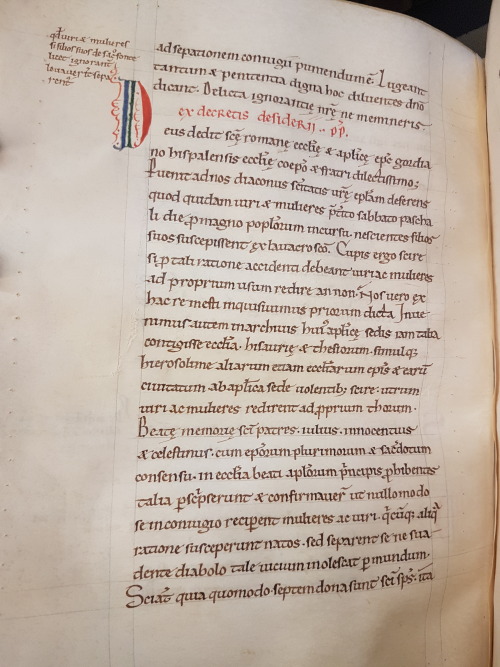 qđ viri & mulieres
si filios suos de sac̃ fonte
ignorant̃
sepa
rent̃
ad sepationem coniugii puniendum ẽ. Lugeant
tantum & penitentia digna hoc diluentes dño
dicant. Delicta ignorantie nr̃ę ne memineris.
ex decretis desiderii .. p̃p̃.
Deus dedit sc̃ę romane ecclię & aplicę ep̃c gordia
no hispalensis ecclię coepõ & fratri dilectissimo;
Fuent ad nos diaconus sc̃itatis ur̃ę eplam deferens
quod quidam uiri & mulieres p̃t̃ito sabbato pascha
li die p magno poplorum incursu. nescientes filios
suos suscepissent ex lauacro sc̃o. Cupis ergo scire
si p tali ratione accidenti debeant uiri ac mulieres
ad proprium usum redire an non. Nos uero ex
hac re mesti inquisiuimus priorum dicta. Inue
nimus autem in archiuis hui᾽ aplicę sedis iam talia
contigisse ecclia. hisaurie & ephesiorum. simulq;
hierosolime aliarum etiam eccliarum epis̃ & earũ
ciuitatum ab aplica sede uolentib; scire. utrum
uiri ac mulieres redirent ad pprium thorum.
Beatę memorię sc̃i patres. iulius. innocentius
& celestinus. cum eporum plurimorum & sacdotum
consensu. in ecclia beati aplorum p̃ncipis phibentes
talia pscp̃serunt & confirmauer̃ ut nullo modo
se in coniugio recipent mulieres ac uiri. q̃cũq; aliq̃
ratione susceperunt natos. sed separent se ne sua
dente diabolo tale uicium inolescat p mundum.
Sciat̃ quia quomodo septem dona sunt sc̃i sp̃s. ita